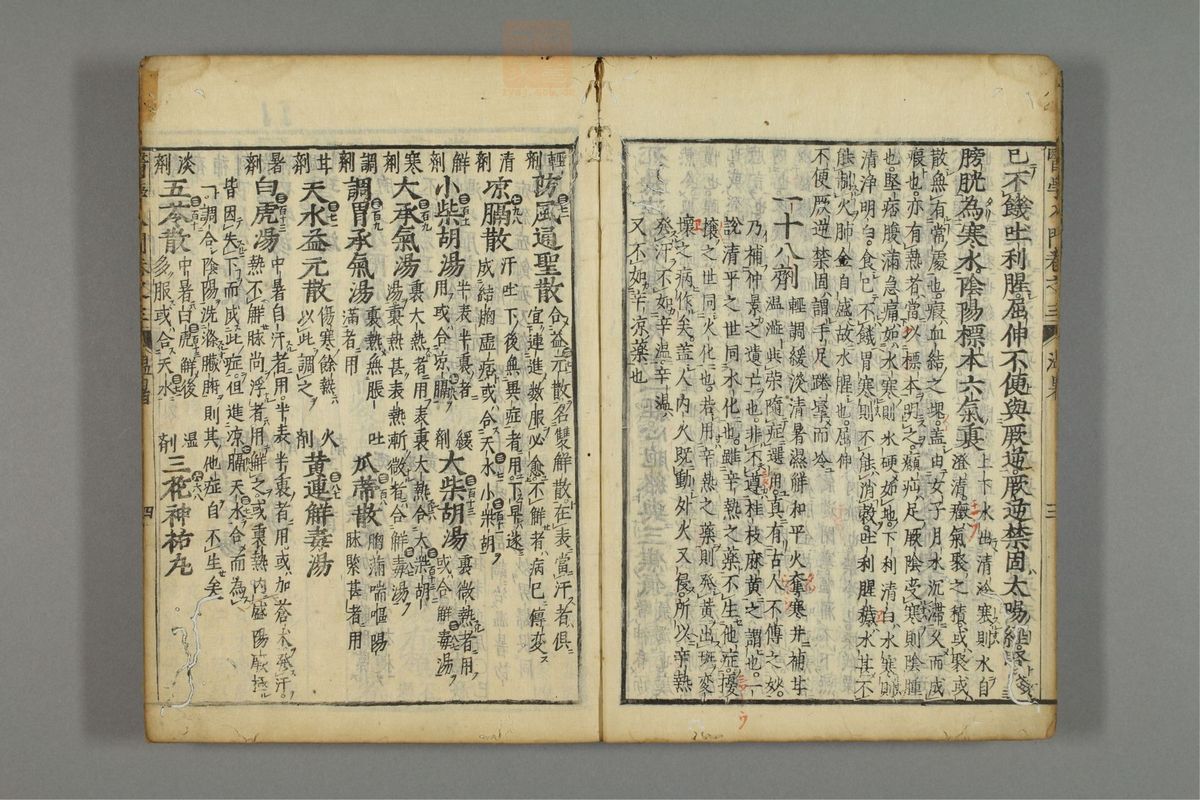 已不飢吐利腥屈伸不便與厥逆厥逆禁固太陽經
膀胱為寒水陰陽標本六氣裏上下水出清冷寒則水自
澄清癥氣聚之積或聚或
散無有常處也瘕血結之塊蓋由女子月水沉滯久而成
瘕也亦有熱者當以標本明之㿗疝足厥陰受寒則陰腫
也堅痞腹滿急痛如水寒則水硬如地下利清白水寒則
清淨明白食已不餓胃寒則不能消穀吐利腥穢水其不
能制火肺金自虛故水腥也屈伸
不便厥逆禁固謂手足踡攣而冷
一十八劑輕調緩淡清暑濕解和平火奪寒并補甘
温澁些榮隨症選用真有古人不傳之妙
乃補仲景之遺亡也非不遵桂枝麻黄之謂也一
說清平之世同水化也雖辛熱之藥不生他症擾
攘之世同火化也若用辛熱之藥則發黄出斑變
壞之病作矣蓋人内火既動外火又侵所以辛熱
發汗不如辛温辛温
又不如辛凉藥也
輕劑 防風通聖散合益元散名雙解散在表當汗者俱
宜連進數服必愈不解者病已傳變
清劑 凉膈散汗吐下後無異症者用下早迷
成結胸虛痞或合天水小柴胡
解劑 小柴胡湯半表半裏者
用或合凉膈
緩劑 大柴胡湯裏微熱者用
或合解毒湯
寒劑 大承氣湯裏大熱者用表裏大熱合大柴胡
湯裏熱甚表熱漸微者合解毒湯
調劑 調胃承氣湯裏熱無脹
滿者用
吐 瓜蒂散胸滿喘嘔陽
脉緊甚者用
甘劑 天水益元散傷寒餘熱
以此調之
火劑 黄連解毒湯
暑劑 白虎湯中暑自汗者用半表半裏者用或加蒼朮發汗
熱不解脉尚浮者用解之或裏熱内盛陽厥極
皆因失下而成此症但進凉膈天水合而為一
調合陰陽洗滌臟腑則其他症自不生矣
淡劑 五苓散中暑白虎解後
多服或合天水
湿劑 三花神祐丸
三
四